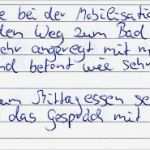 e bei der Mobilisatio
den Weg zum Bad
sehr angeregt mit m
und betont wie sehr
zum Mittagessen se
das Gespräch mit